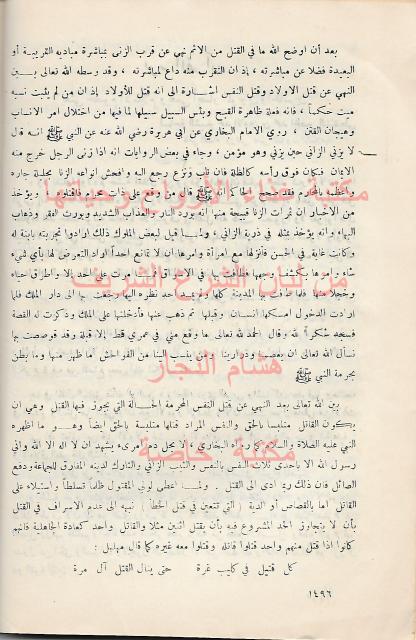 بعد أن اوضح الله ما في القتل من الاثم نهى عن قرب الزنى بمباشرة مباديه القريبة أو
البعيدة فضلا عن مباشرته ، إذ ان التقرب منه داع لمباشرته ، وقد وسطه الله تعالى بين
النهي عن قتل الاولاد وقتل النفس اشارة الى انه قتل للأولاد إذ ان من لم يثبت نسبه
ميت حكماً ، فانه فعلة ظاهرة القبح وبئس السبيل سبيلها لما فيها من اختلال امر الانساب
وهيجان الفتن ، روي الامام البخاري عن أبي هريرة رضي الله عنه عن النبي ﷺ انه قال
لا يزني الزاني حين يزني وهو مؤمن ، وجاء في بعض الروايات انه اذا زنى الرجل خرج منه
الايمان فكان فوق رأسه كالظلة فان تاب ونزع رجع اليه وافحش انواعه الزنا بحليلة جاره
واعظمه بالمحرم فقد صحح الحاكم انه ﷺ قال من وقع على ذات محرم فاقتلوه ، ويؤخذ
من الاخبار ان ثمرات الزنا قبيحة منها انه يورد النار والعذاب الشديد ويورث الفقر وذهاب
البهاء وانه يؤخذ بمثله في ذرية الزاني ، ولما قيل لبعض الملوك ذلك ارادوا تجربته بابنة له
وكانت غاية في الحسن فأنزلها مع امرأة وامرها ان لا تمانع احداً اراد التعرض لها بأي شيء
شاء وامرها بكشف وجهها فطافت بها في الاسواق فما مرت على احد إلا واطرق حياء
وخجلا منها فلما طافت بها المدينة كلها ولم يمد احد نظره اليها رجعت بها الى دار الملك فلما
ارادت الدخول امسكها انسان وقبلها ثم ذهب عنها فأدخلتها على الملك وذكرت له القصة
فسجد شكراً لله وقال الحمد لله تعالى ما وقع مني في عمري قط إلا قبلة وقد قوصصت بها
نسأل الله تعالى ان يعصمنا وذرارينا ومن ينسب الينا من الفواحش ما ظهر منها وما بطن
بحرمة النبي ﷺ
بين الله تعالى بعد النهي عن قتل النفس المحرمة الحالة التي يجوز فيها القتل وهي ان
يكون القاتل متلبساً بالحق والنفس المراد قتلها متلبسة بالحق ايضاً وهو ما اظهره
النبي عليه الصلاة والسلام كما رواه البخاري ، لا يحل دم امرىء يشهد ان لا اله الا الله واني
رسول الله الا باحدى ثلاث النفس بالنفس والثيب الزاني والتارك لدينه المفارق للجماعة ودفع
الصائل فان ذلك ربما ادى الى القتل . ولما اعطى لولي المقتول ظلماً تسلطاً واستيلاء على
القاتل اما بالقصاص أو الدية ( التي تتعين في قتل الخطأ ) نبهه الى عدم الاسراف في القتل
بأن لا يتجاوز الحد المشروع فيه بأن يقتل اثنين مثلا والقاتل واحد كعادة الجاهلية فانهم
كانوا اذا قتل منهم واحد قتلوا قاتله وقتلوا معه غيره كما قال مهلهل :
كل قتيل في كليب غرة حتى ينال القتل آل مرة
١٤٩٦
من لبنان الفرع الشريف
هشام النجار
مكتبة خاصة